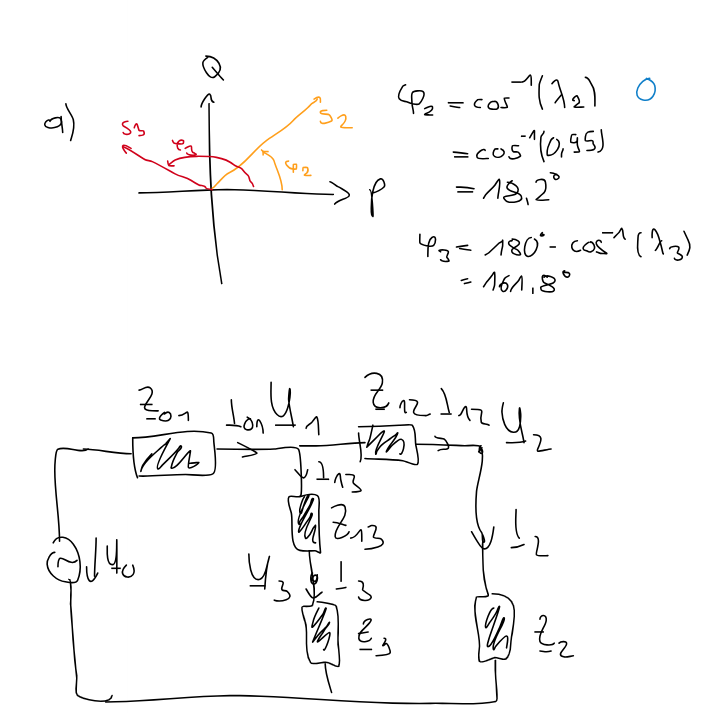 a)
Q
S3
φ3
S2
φ2
P
φ2 = cos⁻¹(λ2)
= cos⁻¹(0,95)
= 18,2°
φ3 = 180° - cos⁻¹(λ3)
= 161,8°
Z01
I01
U1
Z12
I12
U2
I13
Z13
U0
U3
I3
I2
Z3
Z2